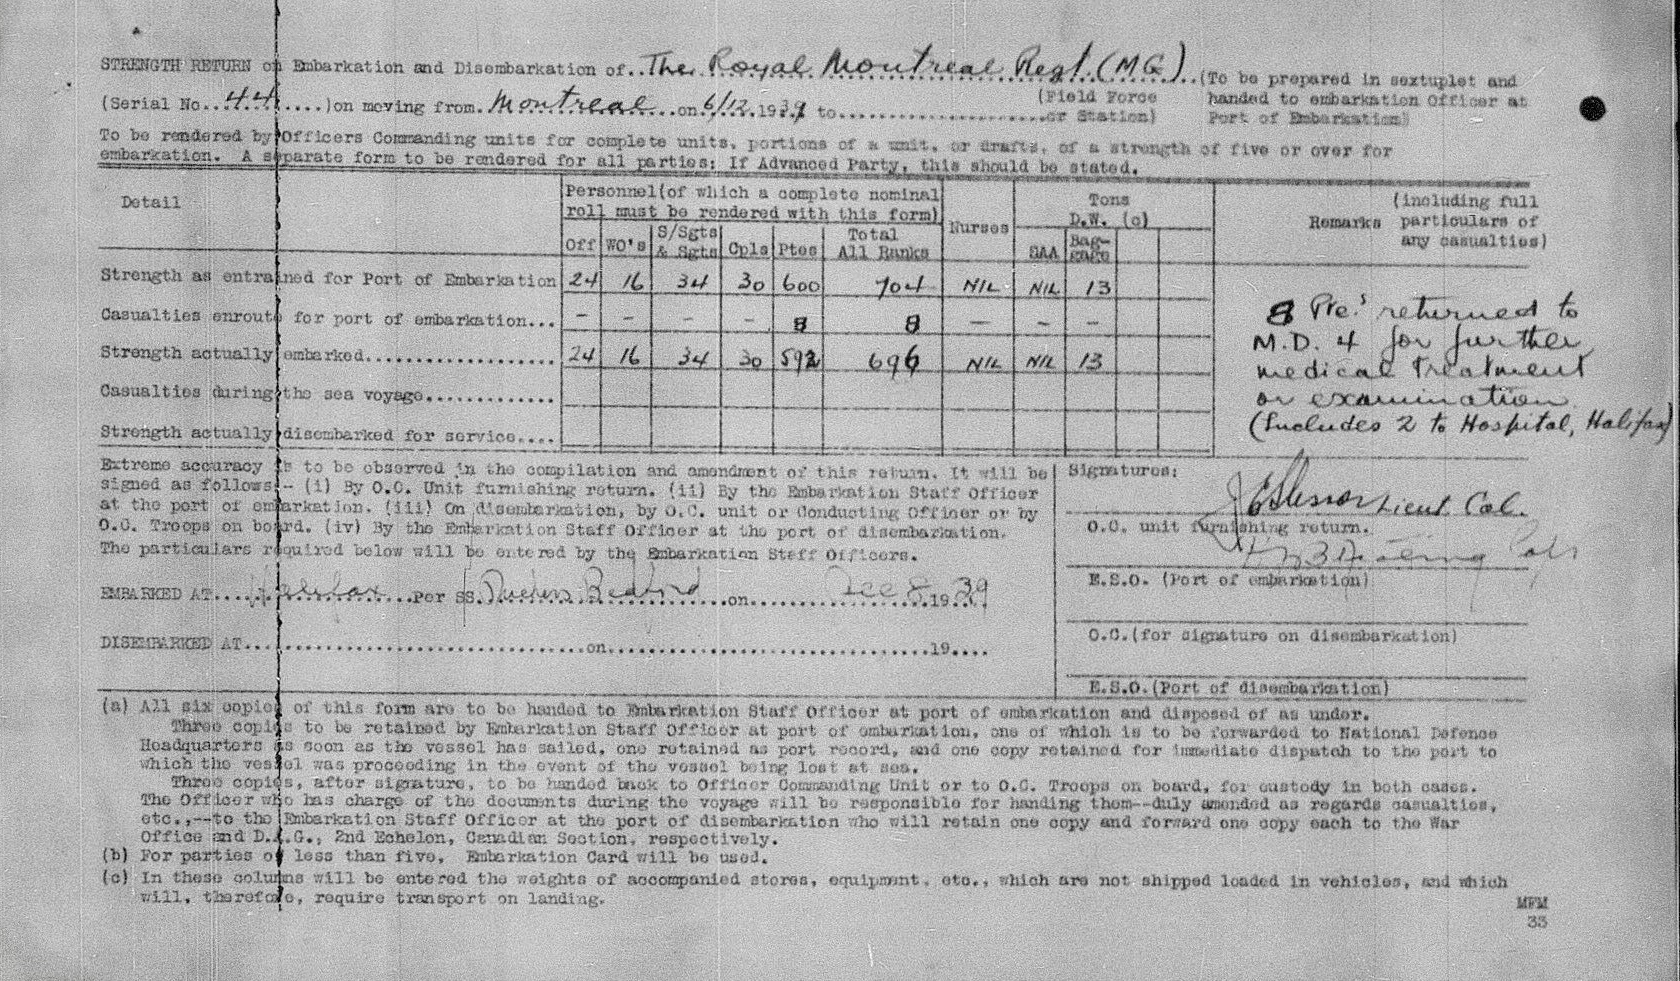 STRENGTH RETURN on Embarkation and Disembarkation of..The Royal Montreal Regt. (M.G.)..(To be prepared in sextuplet and
(Serial No..44......)on moving from.Montreal...on 6/12.1939 to.................(Field Force or Station) handed to embarkation Officer at Port of Embarkation)
To be rendered by Officers Commanding units for complete units, portions of a unit, or drafts, of a strength of five or over for
embarkation. A separate form to be rendered for all parties: If Advanced Party, this should be stated.
Detail
Personnel(of which a complete nominal
roll must be rendered with this form)
Off WO's S/Sgts & Sgts Cpls Ptes Total All Ranks
Nurses
Tons
D.W. (c)
SAA Bag-gage
Remarks (including full
particulars of
any casualties)
Strength as entrained for Port of Embarkation 24 16 34 30 600 704 NIL NIL 13
Casualties enroute for port of embarkation... – – – – 8 8 – – –
Strength actually embarked.................. 24 16 34 30 592 696 NIL NIL 13
Casualties during the sea voyage.............
Strength actually disembarked for service....
8 Pte's returned to
M.D. 4 for further
medical treatment
or examination
(Includes 2 to Hospital, Halifax)
Extreme accuracy is to be observed in the compilation and amendment of this return. It will be
signed as follows:- (i) By O.C. Unit furnishing return. (ii) By the Embarkation Staff Officer
at the port of embarkation. (iii) On disembarkation, by O.C. unit or Conducting Officer or by
O.C. Troops on board. (iv) By the Embarkation Staff Officer at the port of disembarkation.
The particulars required below will be entered by the Embarkation Staff Officers.
EMBARKED AT.....Halifax...Per SS.Duchess Bedford...on.........Dec 8.1939
DISEMBARKED AT.................................on...............................19....
Signatures:
Lieut Col.
O.C. unit furnishing return.
E.S.O. (Port of embarkation)
O.C.(for signature on disembarkation)
E.S.O.(Port of disembarkation)
(a) All six copies of this form are to be handed to Embarkation Staff Officer at port of embarkation and disposed of as under.
Three copies to be retained by Embarkation Staff Officer at port of embarkation, one of which is to be forwarded to National Defence
Headquarters as soon as the vessel has sailed, one retained as port record, and one copy retained for immediate dispatch to the port to
which the vessel was proceeding in the event of the vessel being lost at sea.
Three copies, after signature, to be handed back to Officer Commanding Unit or to O.C. Troops on board, for custody in both cases.
The Officer who has charge of the documents during the voyage will be responsible for handing them--duly amended as regards casualties,
etc.,--to the Embarkation Staff Officer at the port of disembarkation who will retain one copy and forward one copy each to the War
Office and D.A.G., 2nd Echelon, Canadian Section, respectively.
(b) For parties of less than five, Embarkation Card will be used.
(c) In these columns will be entered the weights of accompanied stores, equipment, etc., which are not shipped loaded in vehicles, and which
will, therefore, require transport on landing.
MFM
33